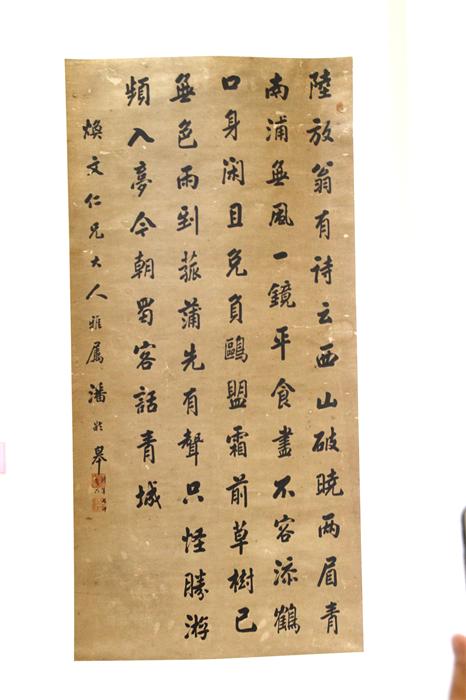 陸放翁有詩云西山破曉兩眉青
南浦無風一鏡平食盡不容添鶴
口身閑且免負鷗盟霜前草樹已
無色雨到菰蒲先有聲只怪勝游
頻入夢今朝蜀客話青城
煥文仁兄大人雅屬 潘齡皋